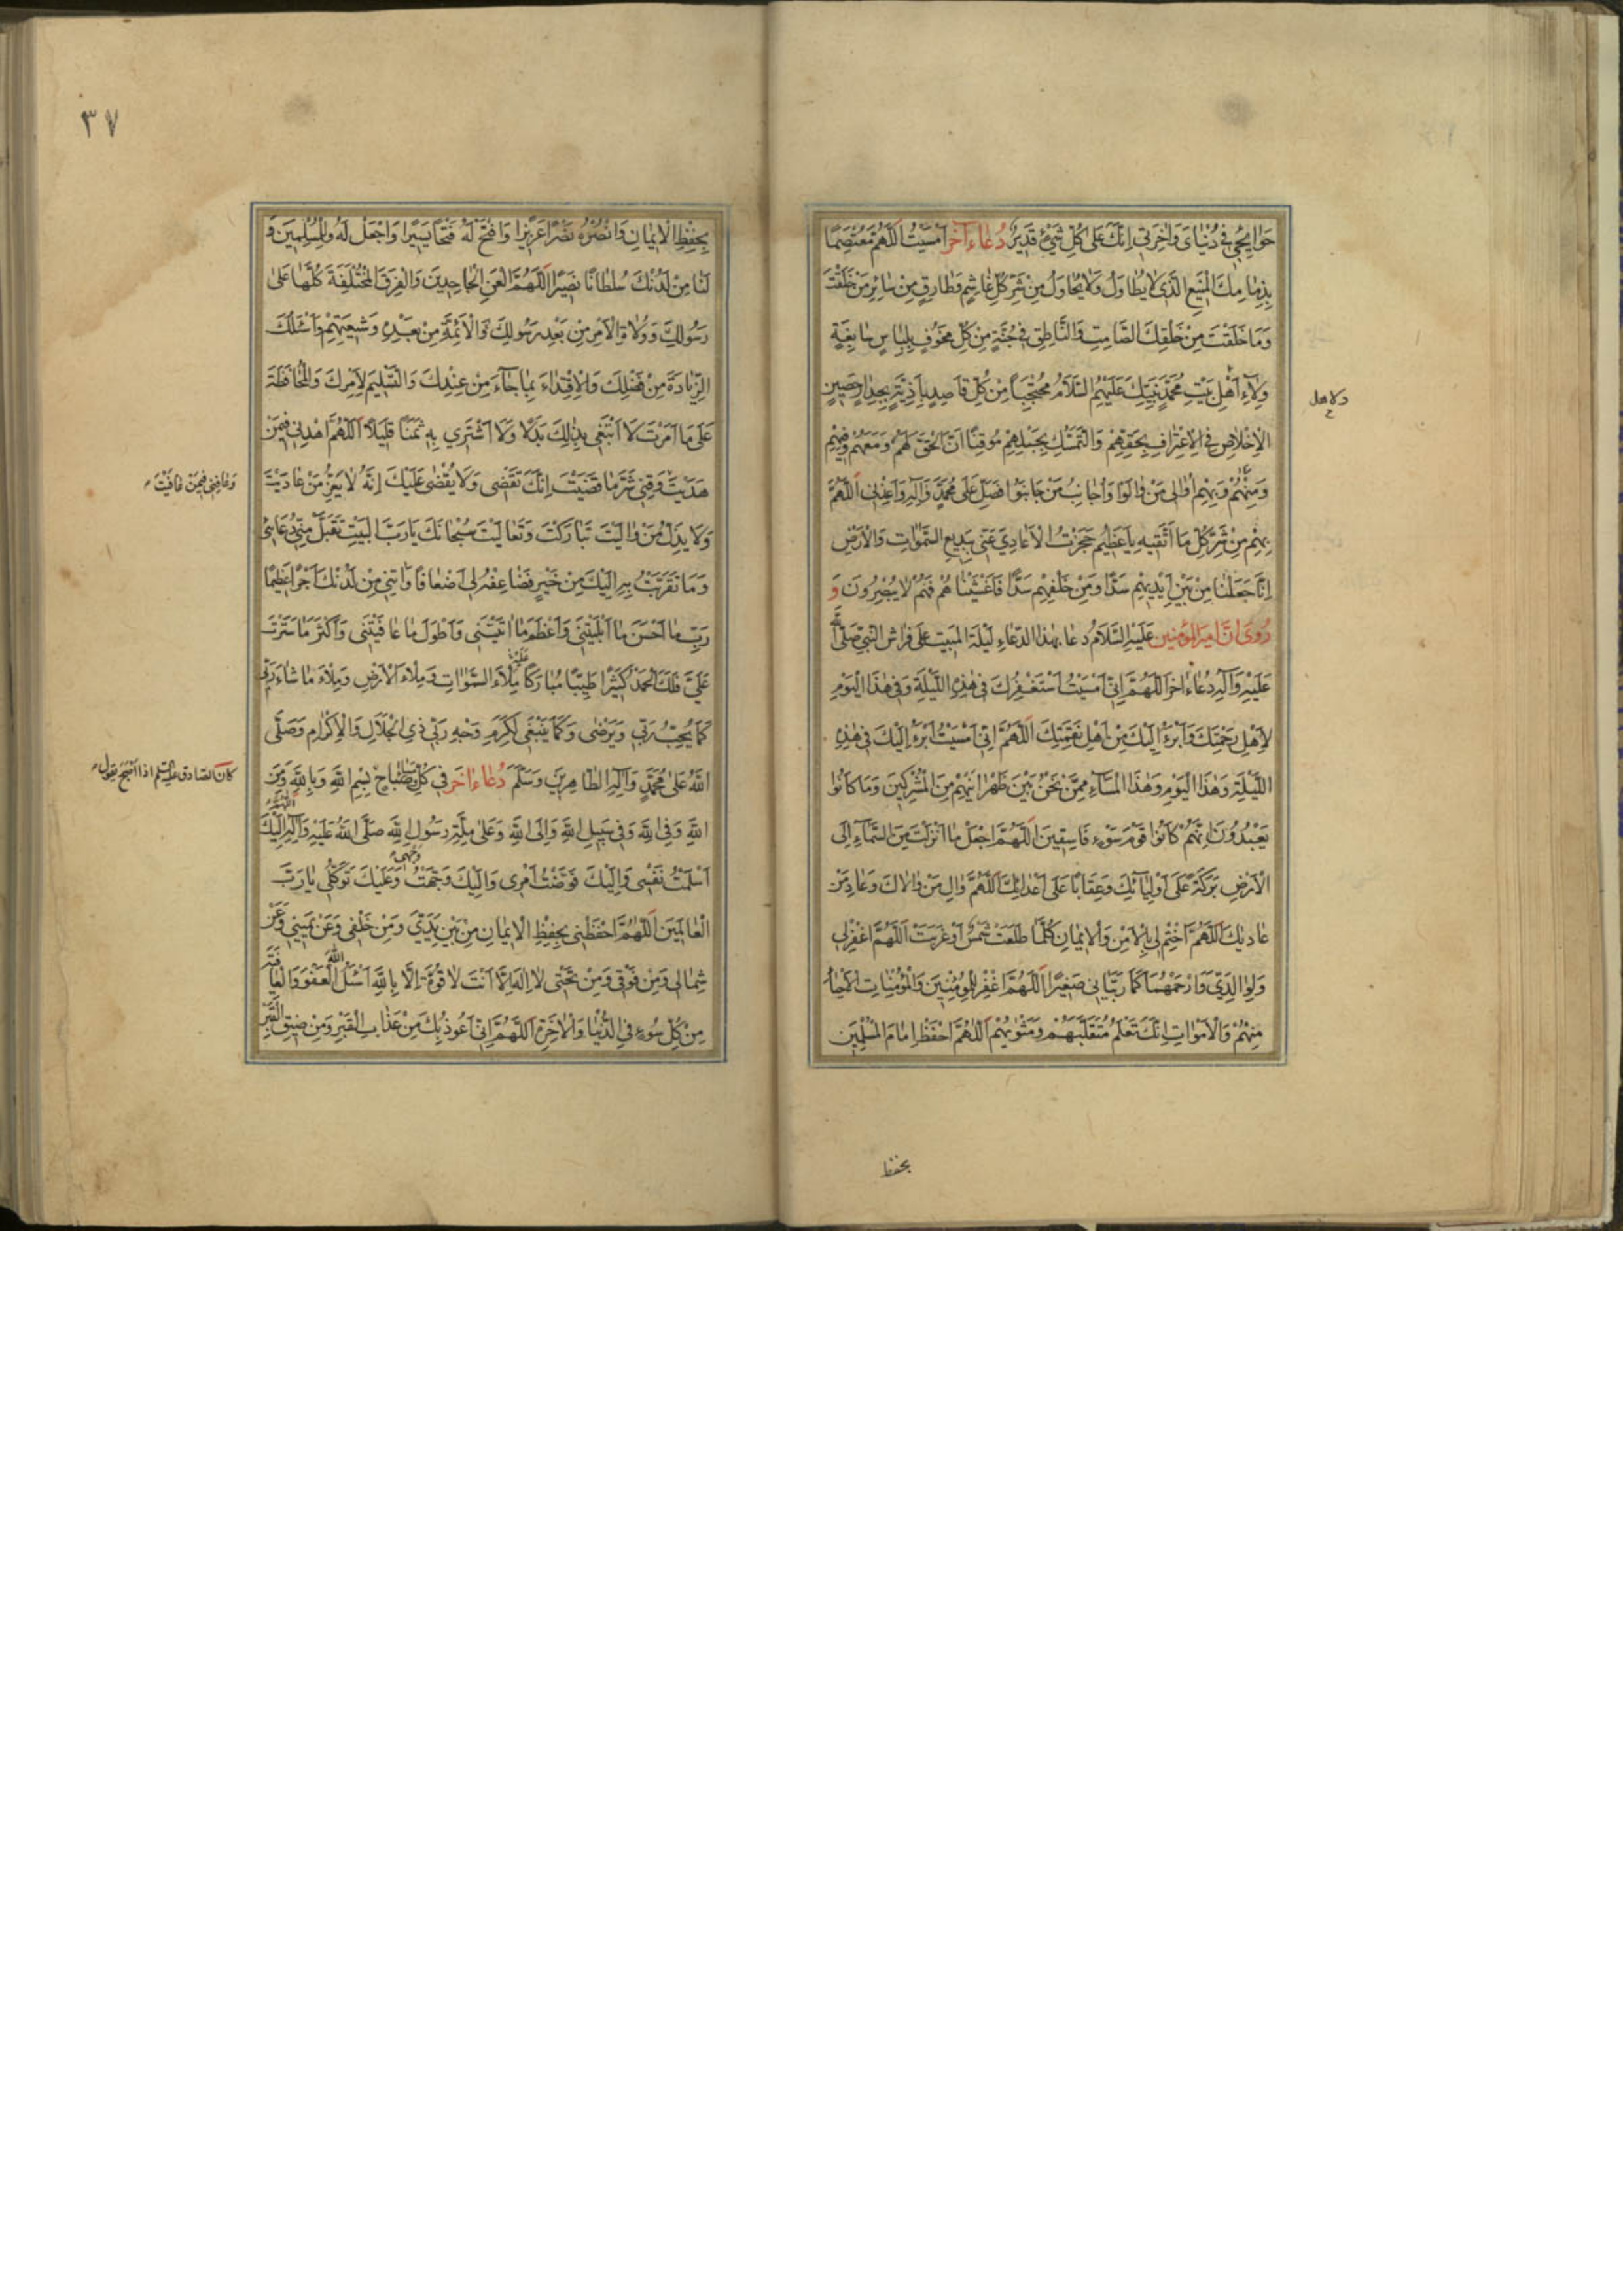 حَوٰايِجى فى دُنْيٰاىَ وَاٰخِرَتى اِنَّكَ عَلىٰ كُلِّ شَىْءٍ قَديرٌ دُعٰاء آخر اَمْسَيْتُ اَللّٰهُمَّ مُعْتَصِمًا
بِذِمٰامِكَ الْمَنيعِ الَّذى لاٰ يُطٰاوَلُ وَلاٰ يُحٰاوَلُ مِنْ شَرِّ كُلِّ غٰاشِمٍ وَطٰارِقٍ مِنْ سٰائِرِ مَنْ خَلَقْتَ
وَمٰا خَلَقْتَ مِنْ خَلْقِكَ الصّٰامِتِ وَالنّٰاطِقِ فى جُنَّةٍ مِنْ كُلِّ مَخُوفٍ بِلِبٰاسٍ سٰابِغَةٍ
وِلاٰءِ اَهْلِ بَيْتِ مُحَمَّدٍ نَبِيِّكَ عَلَيْهِمُ السَّلاٰمُ مُحْتَجِبًا مِنْ كُلِّ قٰاصِدٍ بِاَذِيَّةٍ بِجِدٰارٍ حَصينٍ
الْاِخْلاٰصِ فى الْاِعْتِرٰافِ بِحَقِّهِمْ وَالتَّمَسُّكِ بِحَبْلِهِمْ مُوقِنًا اَنَّ الْحَقَّ لَهُمْ وَمَعَهُمْ وَفيهِمْ
وَمِنْهُمْ وَبِهِمْ اُوٰالى مَنْ وٰالَوْا وَاُجٰانِبُ مَنْ جٰانَبُوا فَصَلِّ عَلىٰ مُحَمَّدٍ وَآلِهِ وَاَعِذْنى اَللّٰهُمَّ
بِهِمْ مِنْ شَرِّ كُلِّ مٰا اَتَّقيهِ يٰا عَظيمُ حَجَزْتُ الْاَعٰادِىَ عَنّى بِبَديعِ السَّمٰوٰاتِ وَالْاَرْضِ
اِنّٰا جَعَلْنٰا مِنْ بَيْنِ اَيْديهِمْ سَدًّا وَمِنْ خَلْفِهِمْ سَدًّا فَاَغْشَيْنٰاهُمْ فَهُمْ لاٰ يُبْصِرُونَ وَ
رُوِىَ اَنَّ اَميرَالْمُؤْمِنينَ عَلَيْهِ السَّلاٰمُ دعا بهذا الدّعٰاءِ لَيْلَةَ الْمَبيتِ عَلىٰ فِرٰاشِ النَّبِىِّ صَلَّى اللّٰهُ
عَلَيْهِ وَآلِهِ دُعٰاء اٰخر اَللّٰهُمَّ اِنّى اَمْسَيْتُ اَسْتَغْفِرُكَ فى هٰذِهِ اللَّيْلَةِ وَفى هٰذَا الْيَوْمِ
لِاَهْلِ رَحْمَتِكَ وَاَبْرَءُ اِلَيْكَ مِنْ اَهْلِ نَقِمَتِكَ اَللّٰهُمَّ اِنّى اَمْسَيْتُ اَبْرَءُ اِلَيْكَ فى هٰذِهِ
اللَّيْلَةِ وَهٰذَا الْيَوْمِ وَهٰذَا الْمَسٰاءِ مِمَّنْ نَحْنُ بَيْنَ ظَهْرٰانَيْهِمْ مِنَ الْمُشْرِكينَ وَمٰا كٰانُوا
يَعْبُدُونَ اِنَّهُمْ كٰانُوا قَوْمَ سَوْءٍ فٰاسِقينَ اَللّٰهُمَّ اجْعَلْ مٰا اَنْزَلْتَ مِنَ السَّمٰاءِ اِلَى
الْاَرْضِ بَرَكَةً عَلىٰ اَوْلِيٰائِكَ وَعِقٰابًا عَلىٰ اَعْدٰائِكَ اَللّٰهُمَّ وٰالِ مَنْ وٰالاٰكَ وَعٰادِ مَنْ
عٰادٰيكَ اَللّٰهُمَّ اخْتِمْ لى بِالْاَمْنِ وَالْايمٰانِ كُلَّمٰا طَلَعَتْ شَمْسٌ اَوْ غَرَبَتْ اَللّٰهُمَّ اغْفِرْ لى
وَلِوٰالِدَىَّ وَارْحَمْهُمٰا كَمٰا رَبَّيٰانى صَغيرًا اَللّٰهُمَّ اغْفِرْ لِلْمُؤْمِنينَ وَالْمُؤْمِنٰاتِ الْاَحْيٰاءِ
مِنْهُمْ وَالْاَمْوٰاتِ اِنَّكَ تَعْلَمُ مُتَقَلَّبَهُمْ وَمَثْوٰيهُمْ اَللّٰهُمَّ احْفَظْ اِمٰامَ الْمُسْلِمينَ
ولاهل
بحفظ
٣٧
بِحِفْظِ الْايمٰانِ وَانْصُرْهُ نَصْرًا عَزيزًا وَافْتَحْ لَهُ فَتْحًا يَسيرًا وَاجْعَلْ لَهُ وَلِلْمُسْلِمينَ وَ
لَنٰا مِنْ لَدُنْكَ سُلْطٰانًا نَصيرًا اَللّٰهُمَّ الْعَنِ الْجٰاحِدينَ وَالْفِرَقَ الْمُخْتَلِفَةَ كُلَّهٰا عَلىٰ
رَسُولِكَ وَوُلاٰةِ الْاَمْرِ مِنْ بَعْدِ رَسُولِكَ وَالْاَئِمَّةِ مِنْ بَعْدِهِ وَشيعَتِهِمْ وَاَسْئَلُكَ
الزِّيٰادَةَ مِنْ فَضْلِكَ وَالْاِقْتِدٰاءَ بِمٰا جٰاءَ مِنْ عِنْدِكَ وَالتَّسْليمَ لِاَمْرِكَ وَالْمُحٰافَظَةَ
عَلىٰ مٰا اَمَرْتَ لاٰ اَبْتَغى بِذٰلِكَ بَدَلًا وَلاٰ اَشْتَرى بِهِ ثَمَنًا قَليلًا اَللّٰهُمَّ اهْدِنى فيمَنْ
هَدَيْتَ وَقِنى شَرَّ مٰا قَضَيْتَ اِنَّكَ تَقْضى وَلاٰ يُقْضىٰ عَلَيْكَ اِنَّهُ لاٰ يَعِزُّ مَنْ عٰادَيْتَ
وَعٰافِنى فيمَنْ عٰافَيْتَ
وَلاٰ يَذِلُّ مَنْ وٰالَيْتَ تَبٰارَكْتَ وَتَعٰالَيْتَ سُبْحٰانَكَ يٰا رَبَّ الْبَيْتِ تَقَبَّلْ مِنّى دُعٰائى
وَمٰا تَقَرَّبْتُ بِهِ اِلَيْكَ مِنْ خَيْرٍ فَضٰاعِفْهُ لى اَضْعٰافًا وَآتِنى مِنْ لَدُنْكَ اَجْرًا عَظيمًا
رَبِّ مٰا اَحْسَنَ مٰا اَبْلَيْتَنى وَاَعْظَمَ مٰا اٰتَيْتَنى وَاَطْوَلَ مٰا عٰافَيْتَنى وَاَكْثَرَ مٰا سَتَرْتَ
عَلَىَّ فَلَكَ الْحَمْدُ كَثيرًا طَيِّبًا مُبٰارَكًا عَلَيْهِ مِلْاَءَ السَّمٰوٰاتِ وَمِلْاَءَ الْاَرْضِ وَمِلْاَءَ مٰا شٰاءَ رَبّى
كَمٰا يُحِبُّ رَبّى وَيَرْضىٰ وَكَمٰا يَنْبَغى لِكَرَمِ وَجْهِ رَبّى ذِى الْجَلاٰلِ وَالْاِكْرٰامِ وَصَلَّى
اللّٰهُ عَلىٰ مُحَمَّدٍ وَآلِهِ الطّٰاهِرينَ وَسَلَّمَ دُعٰاء اٰخَر فى كُلِّ صَبٰاحٍ بِسْمِ اللّٰهِ وَبِاللّٰهِ وَمِنَ
كان الصّادق عليه السّلم اذا اصبح يقول
اللّٰهِ وَفى اللّٰهِ وَفى سَبيلِ اللّٰهِ وَاِلَى اللّٰهِ وَعَلىٰ مِلَّةِ رَسُولِ اللّٰهِ صَلَّى اللّٰهُ عَلَيْهِ وَآلِهِ اَللّٰهُمَّ اِلَيْكَ
اَسْلَمْتُ نَفْسى وَاِلَيْكَ فَوَّضْتُ اَمْرى وَاِلَيْكَ وَجَّهْتُ وَجْهى وَعَلَيْكَ تَوَكُّلى يٰا رَبَّ
الْعٰالَمينَ اَللّٰهُمَّ احْفَظْنى بِحِفْظِ الْايمٰانِ مِنْ بَيْنِ يَدَىَّ وَمِنْ خَلْفى وَعَنْ يَمينى وَعَنْ
شِمٰالى وَمِنْ فَوْقى وَمِنْ تَحْتى لاٰ اِلٰهَ اِلّٰا اَنْتَ لاٰ قُوَّةَ اِلّٰا بِاللّٰهِ اَسْئَلُ اللّٰهَ الْعَفْوَ وَالْعٰافِيَةَ
مِنْ كُلِّ سُوءٍ فى الدُّنْيٰا وَالْاٰخِرَةِ اَللّٰهُمَّ اِنّى اَعُوذُ بِكَ مِنْ عَذٰابِ الْقَبْرِ وَمِنْ ضيقِ الْقَبْرِ